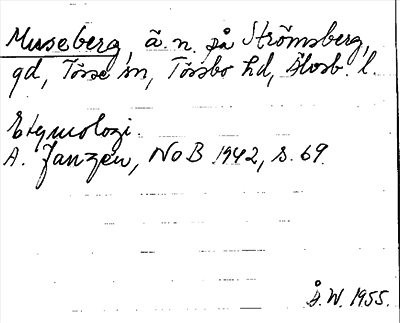 Museberg, ä. n. på Strömsberg,
gd, Tösse sn, Tössbo hd, Älvsb. l.
Etymologi.
A. Janzén, NoB 1942, s. 69.
Å. W. 1955.